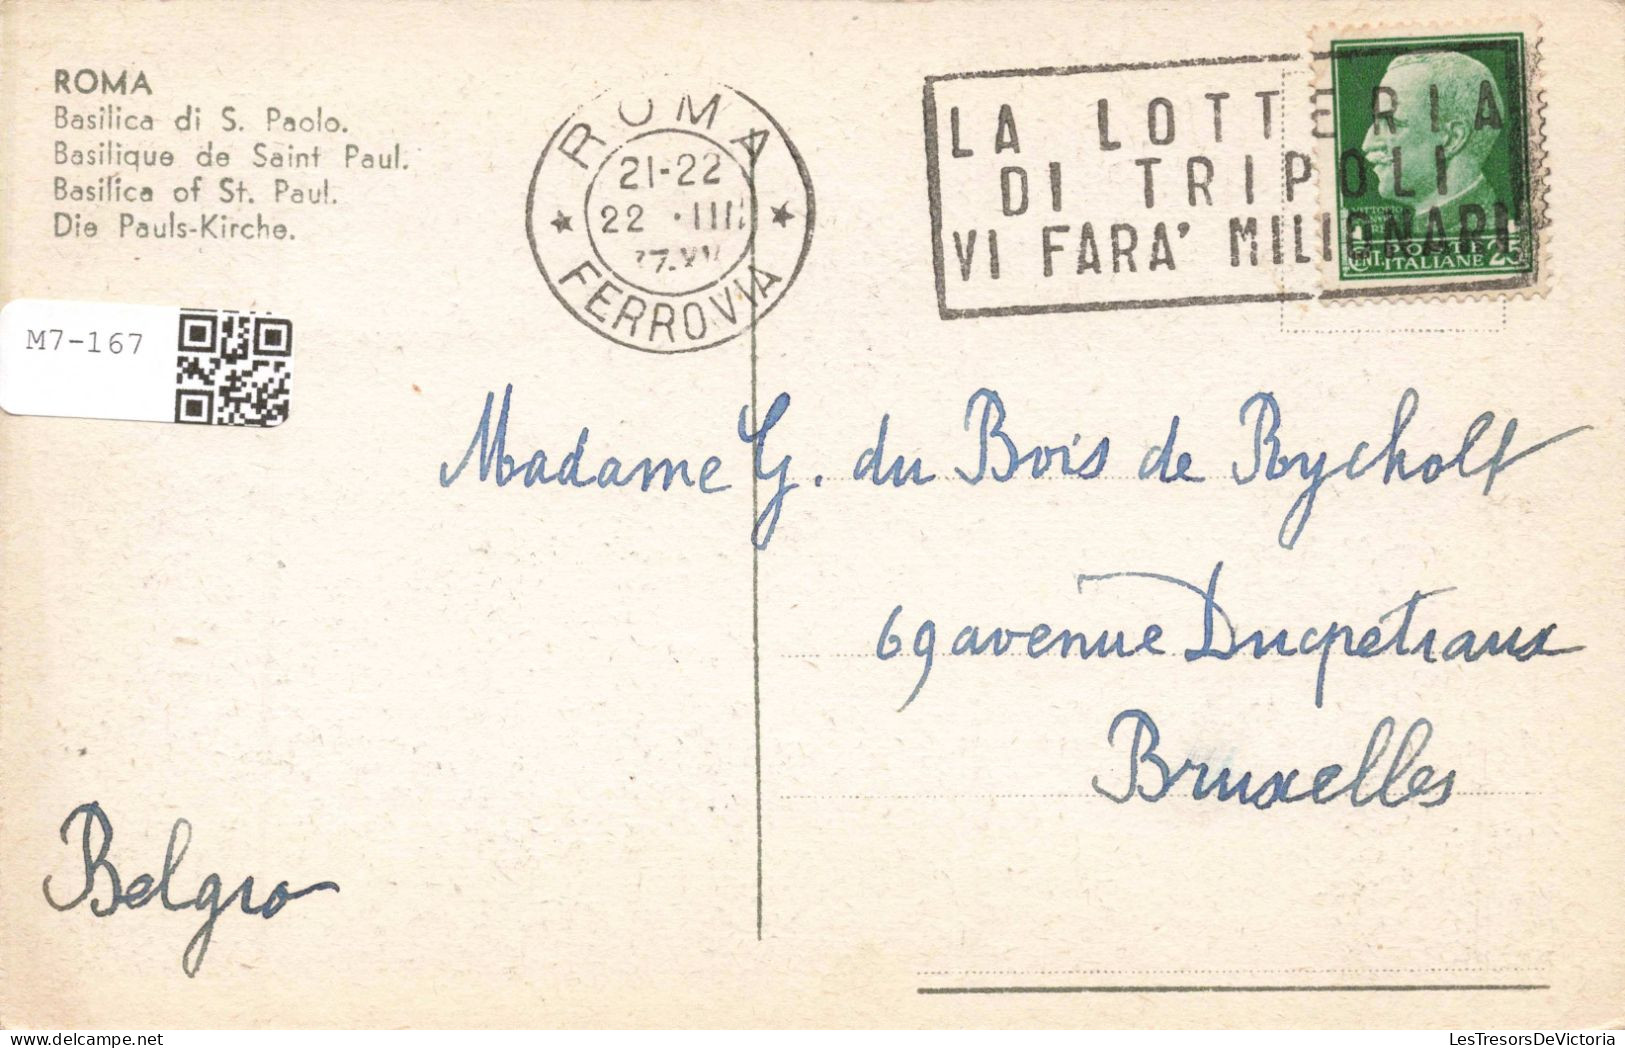 ROMA
Basilica di S. Paolo.
Basilique de Saint Paul.
Basilica of St. Paul.
Die Pauls-Kirche.
ROMA
21-22
22 · III
FERROVIA
LA LOTTERIA
DI TRIPOLI
VI FARA' MILIONARI
POSTE
CENT. ITALIANE 25
M7-167
Madame G. du Bois de Ryckolt
69 avenue Ducpétiaux
Bruxelles
Belgio
LesTresorsDeVictoria